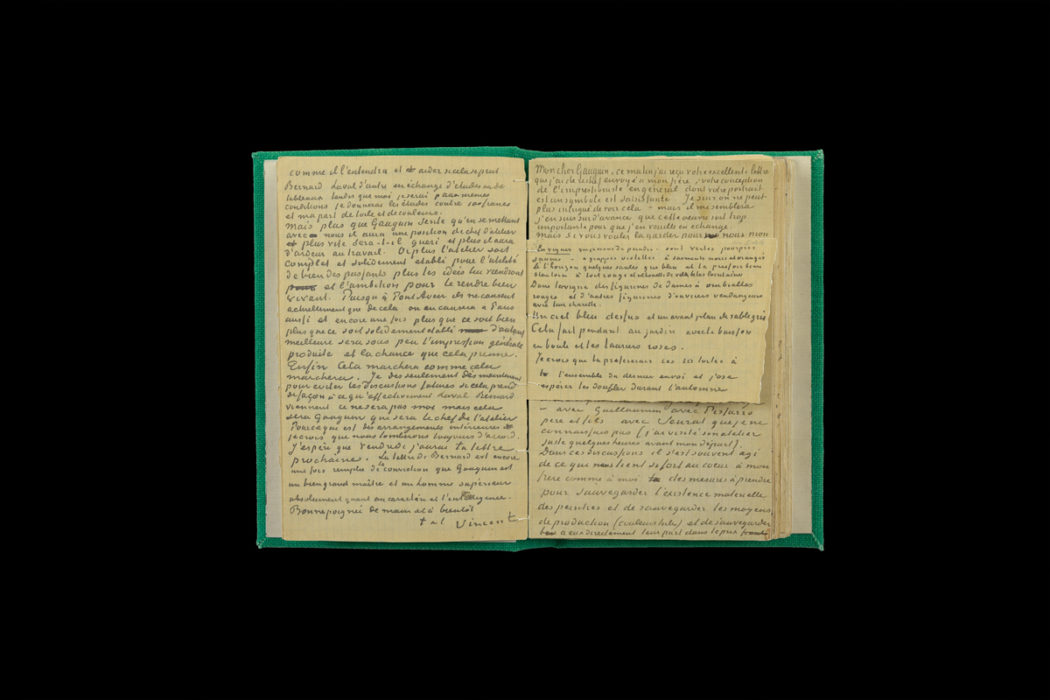 comme il l'entendra et aider si cela se peut
Bernard Laval d'autres en échange d'études ou de
tableaux tandis que moi je serai p aux mêmes
conditions je donnerai les études contre 100 francs
et ma part de toile et de couleurs.
Mais plus que Gauguin sente qu'en se mettant
avec nous il aura une position de chef d'atelier
et plus vite sera-t-il guéri et plus il aura
d'ardeur au travail. Or plus l'atelier soit
complet et solidement établi pour l'utilité
de bien des passants plus les idées lui viendront
et l'ambition pour le rendre bien
vivant. Puisqu'à Pont Aven ils ne causent
actuellement que de cela on en causera à Paris
aussi et encore une fois plus que ce soit bien
plus que ce soit solidement établi d'autant
meilleure sera sous peu l'impression générale
produite et la chance que cela prenne.
Enfin cela marchera comme cela
marchera. Je dis seulement dès maintenant
pour éviter les discussions futures si cela prend
de façon à ce qu'effectivement Laval Bernard
viennent ce ne sera pas moi mais cela
sera Gauguin qui sera le chef de l'atelier
Pour ce qui est des arrangements intérieures
je crois que nous tomberons toujours d'accord.
J'espère que vendredi j'aurai ta lettre
prochaine. La lettre de Bernard est encore
une fois remplie de la conviction que Gauguin est
un bien grand maitre et un homme supérieur
absolument quant au caractère et l'intelligence.
Bonne poignée de main et à bientôt
t. à t. Vincent
Mon cher Gauguin, ce matin j'ai reçu votre excellente lettre
que j'ai de suite envoyé à mon frère; votre conception
de l'impressioniste en général dont votre portrait
est un symbole est saisissante. Je suis on ne peut
plus intrigué de voir cela – mais il me semblera
j'en suis sur d'avance que cette oeuvre soit trop
importante pour que j'en veuille en échange.
Mais si vous voulez la garder pour nous mon
La vigne que je viens de peindre – sont vertes pourpres
jaunes – à grappes violettes à sarments noirs et orangés
A l'horizon quelques saules gris bleu et le pressoir bien
bien loin à toit rouge et silhouette de ville lilas lointaine
Dans la vigne des figurines de dames à ombrelles
rouges et d'autres figurines d'ouvriers vendangeurs
avec leur charette.
Un ciel bleu dessus et un avant plan de sable gris
Cela fait pendant au jardin avec le buisson
en boule et les lauriers roses.
Je crois que tu préfereras ces 10 toiles à
l'ensemble du dernier envoi et j'ose
espérer les doubler durant l'automne
– avec Guillaumin avec Pissarro
père et fils avec Seurat que je ne
connaissais pas (j'ai visité son atelier
juste quelques heures avant mon départ).
Dans ces discussions il s'est souvent agi
de ce que nous tient si fort au coeur à mon
frère comme à moi les mesures à prendre
pour sauvegarder l'existence matérielle
des peintres et de sauvegarder les moyens
de production (couleurs toiles) et de sauvegarder
à eux directement leur part dans le prix